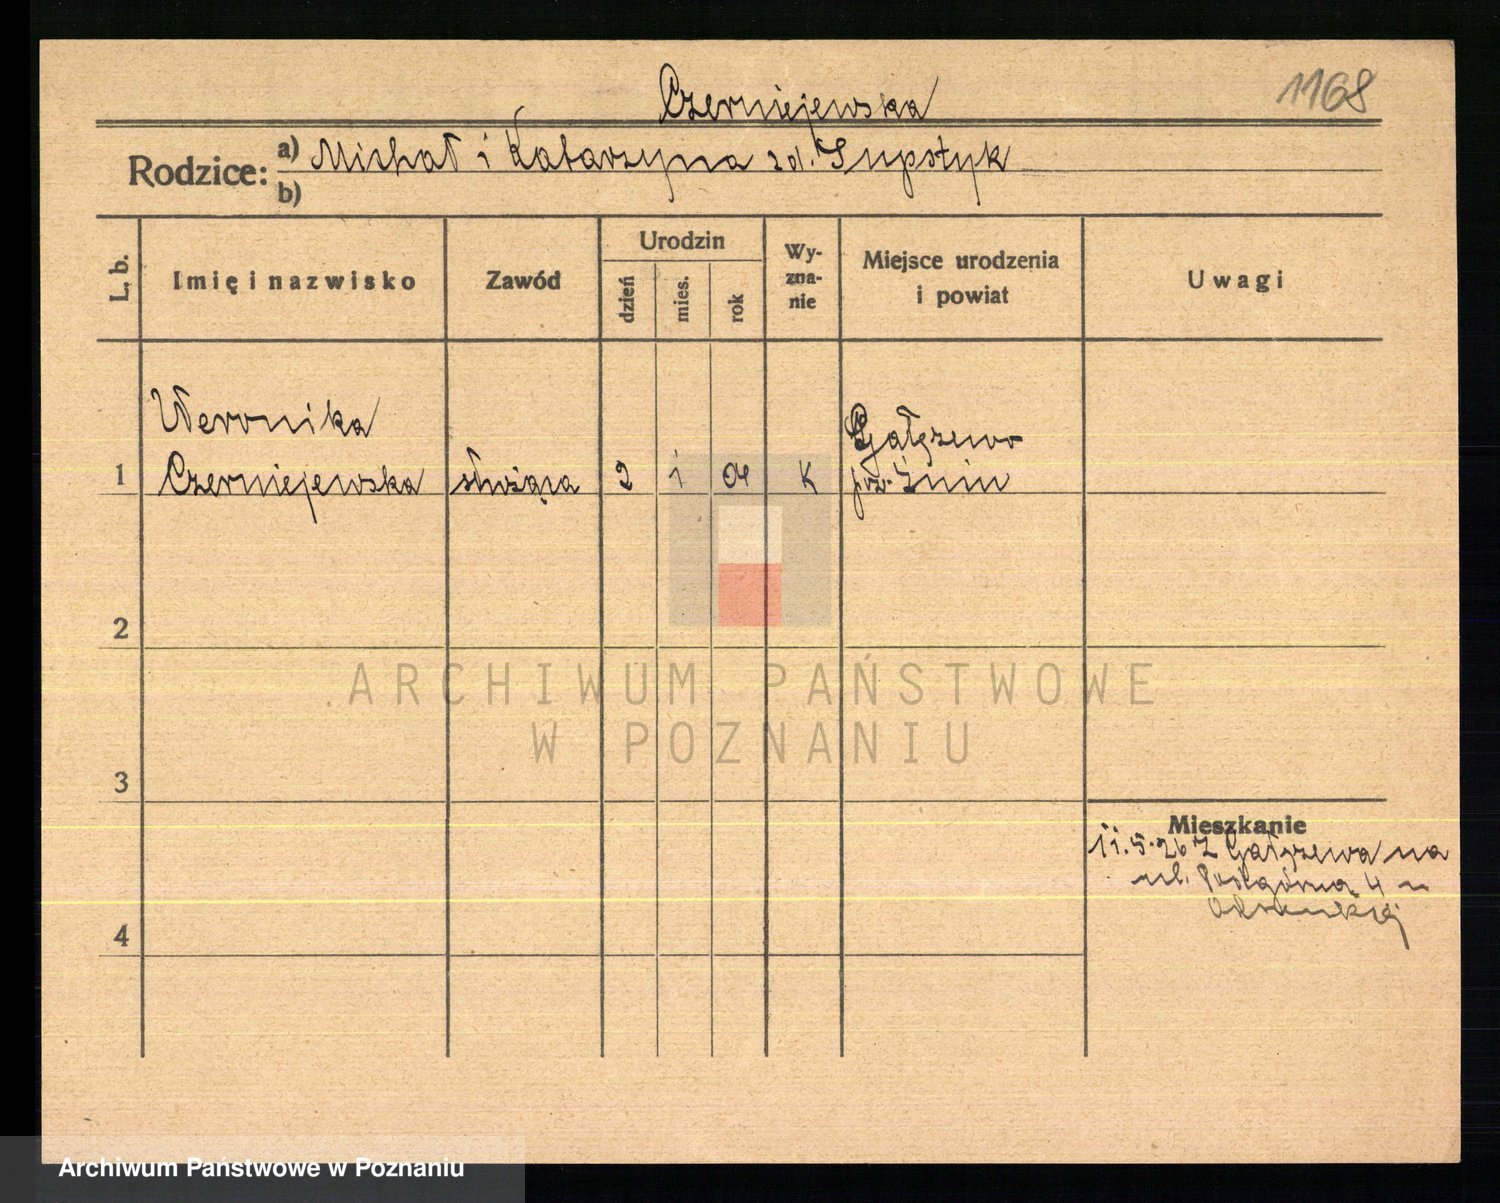 1168
Czerniejewska
Rodzice: a) Michał i Katarzyna zd. Supstyk
b)
L. b. Imię i nazwisko Zawód Urodzin dzień mies. rok Wyzna-nie Miejsce urodzenia i powiat Uwagi
Weronika
Czerniejewska
1 służąca 2 1 04 K
Gałęzewo
pow. Żnin
2
ARCHIWUM PAŃSTWOWE
W POZNANIU
3
Mieszkanie
11.5.26 z Gałęzewa na
ul. Podgórną 4 u
4
Archiwum Państwowe w Poznaniu